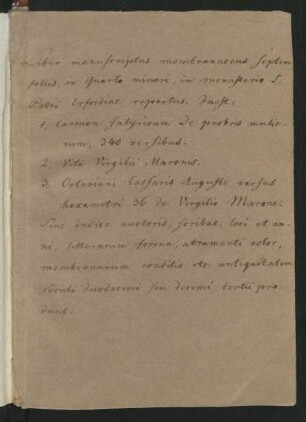 Liber manuscriptus membranaceus septem
foliis, in quarto minori, in monasterio S.
Petri Erfordiae repertus. Inest:
1. Carmen satyricum De probris mulie-
rum, 340 versibus.
2. Vita Virgilii Maronis.
3. Octaviani Caesaris Augusti versus
hexametri 36 de Virgilio Marone.
Sine indice auctoris, scribae, loci et an-
ni, litterarum forma, atramenti color,
membranarum conditio etc. antiquitatem
seculi duodecimi seu decimi tertii pro-
dunt.